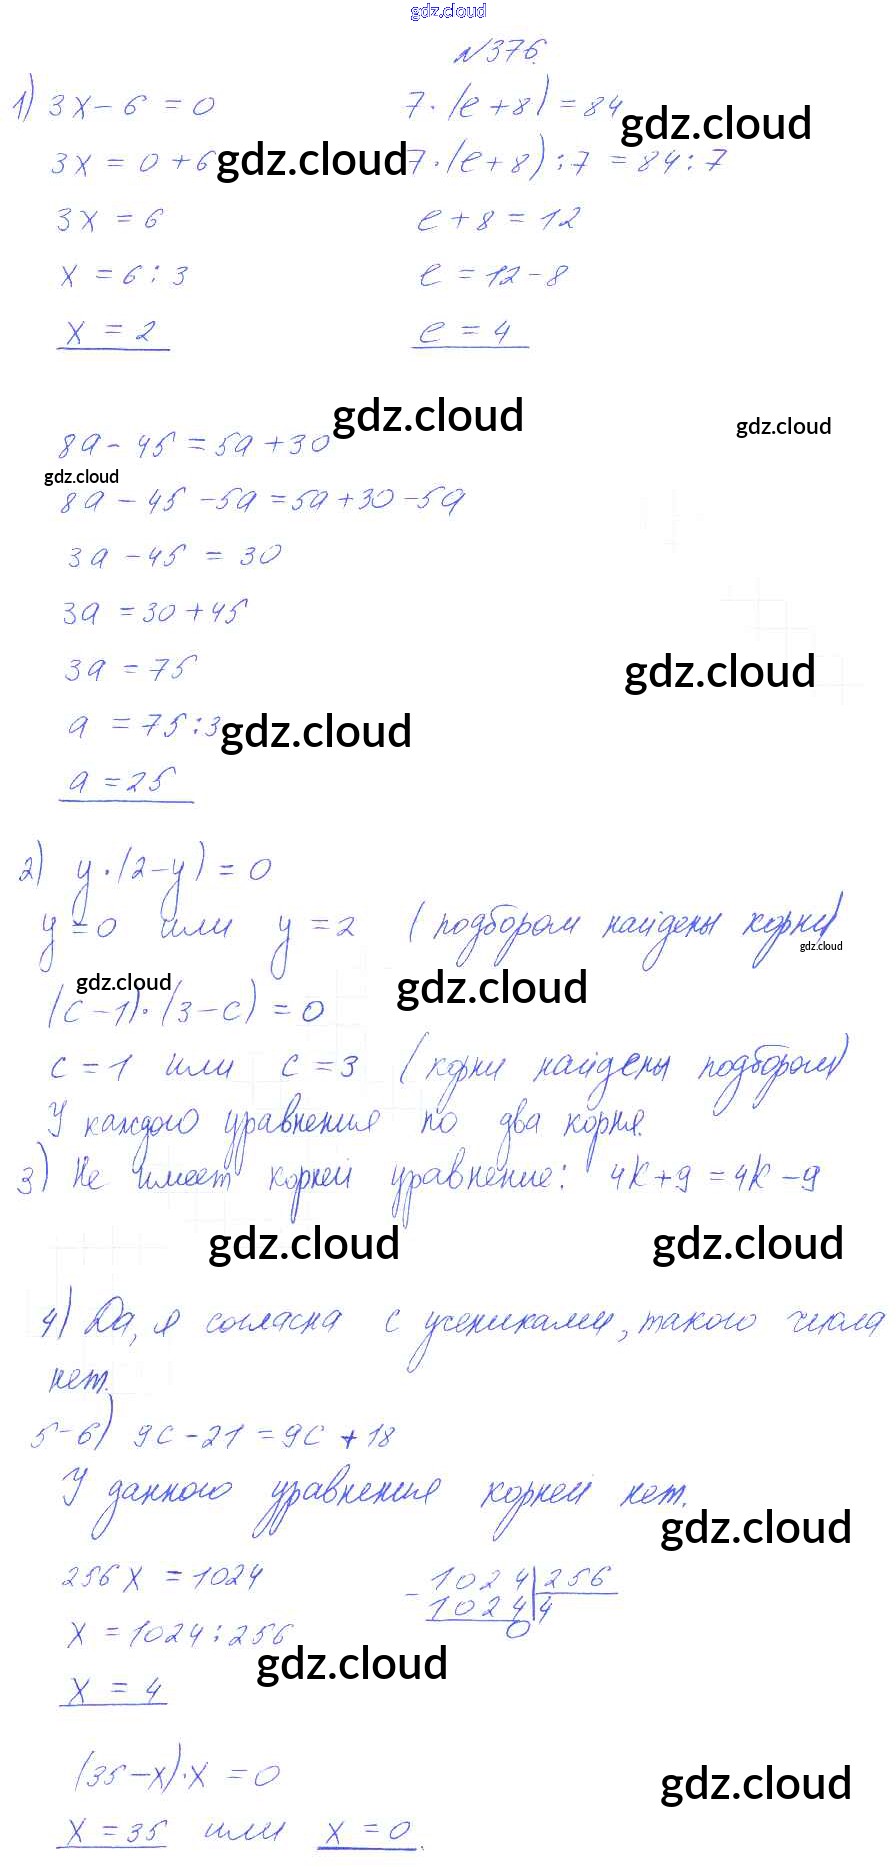 gdz.cloud
№376.
1) 3x - 6 = 0
3x = 0 + 6
3x = 6
x = 6 : 3
x = 2
7 · (e + 8) = 84
7 · (e + 8) : 7 = 84 : 7
e + 8 = 12
e = 12 - 8
e = 4
gdz.cloud
gdz.cloud
gdz.cloud
gdz.cloud
8a - 45 = 5a + 30
gdz.cloud
8a - 45 - 5a = 5a + 30 - 5a
3a - 45 = 30
3a = 30 + 45
3a = 75
gdz.cloud
a = 75 : 3
gdz.cloud
a = 25
2) y · (2 - y) = 0
y = 0 или y = 2 (подбором найдены корни)
gdz.cloud
gdz.cloud
gdz.cloud
(c - 1) · (3 - c) = 0
c = 1 или c = 3 (корни найдены подбором)
У каждого уравнения по два корня.
3) Не имеет корней уравнение: 4k + 9 = 4k - 9
gdz.cloud
gdz.cloud
4) Да, я согласна с учениками, такого числа
нет.
5-6) 9c - 21 = 9c + 18
У данного уравнения корней нет.
gdz.cloud
256x = 1024
x = 1024 : 256
x = 4
- 1024 | 256
1024 | 4
0
gdz.cloud
(35 - x) · x = 0
gdz.cloud
x = 35 или x = 0.